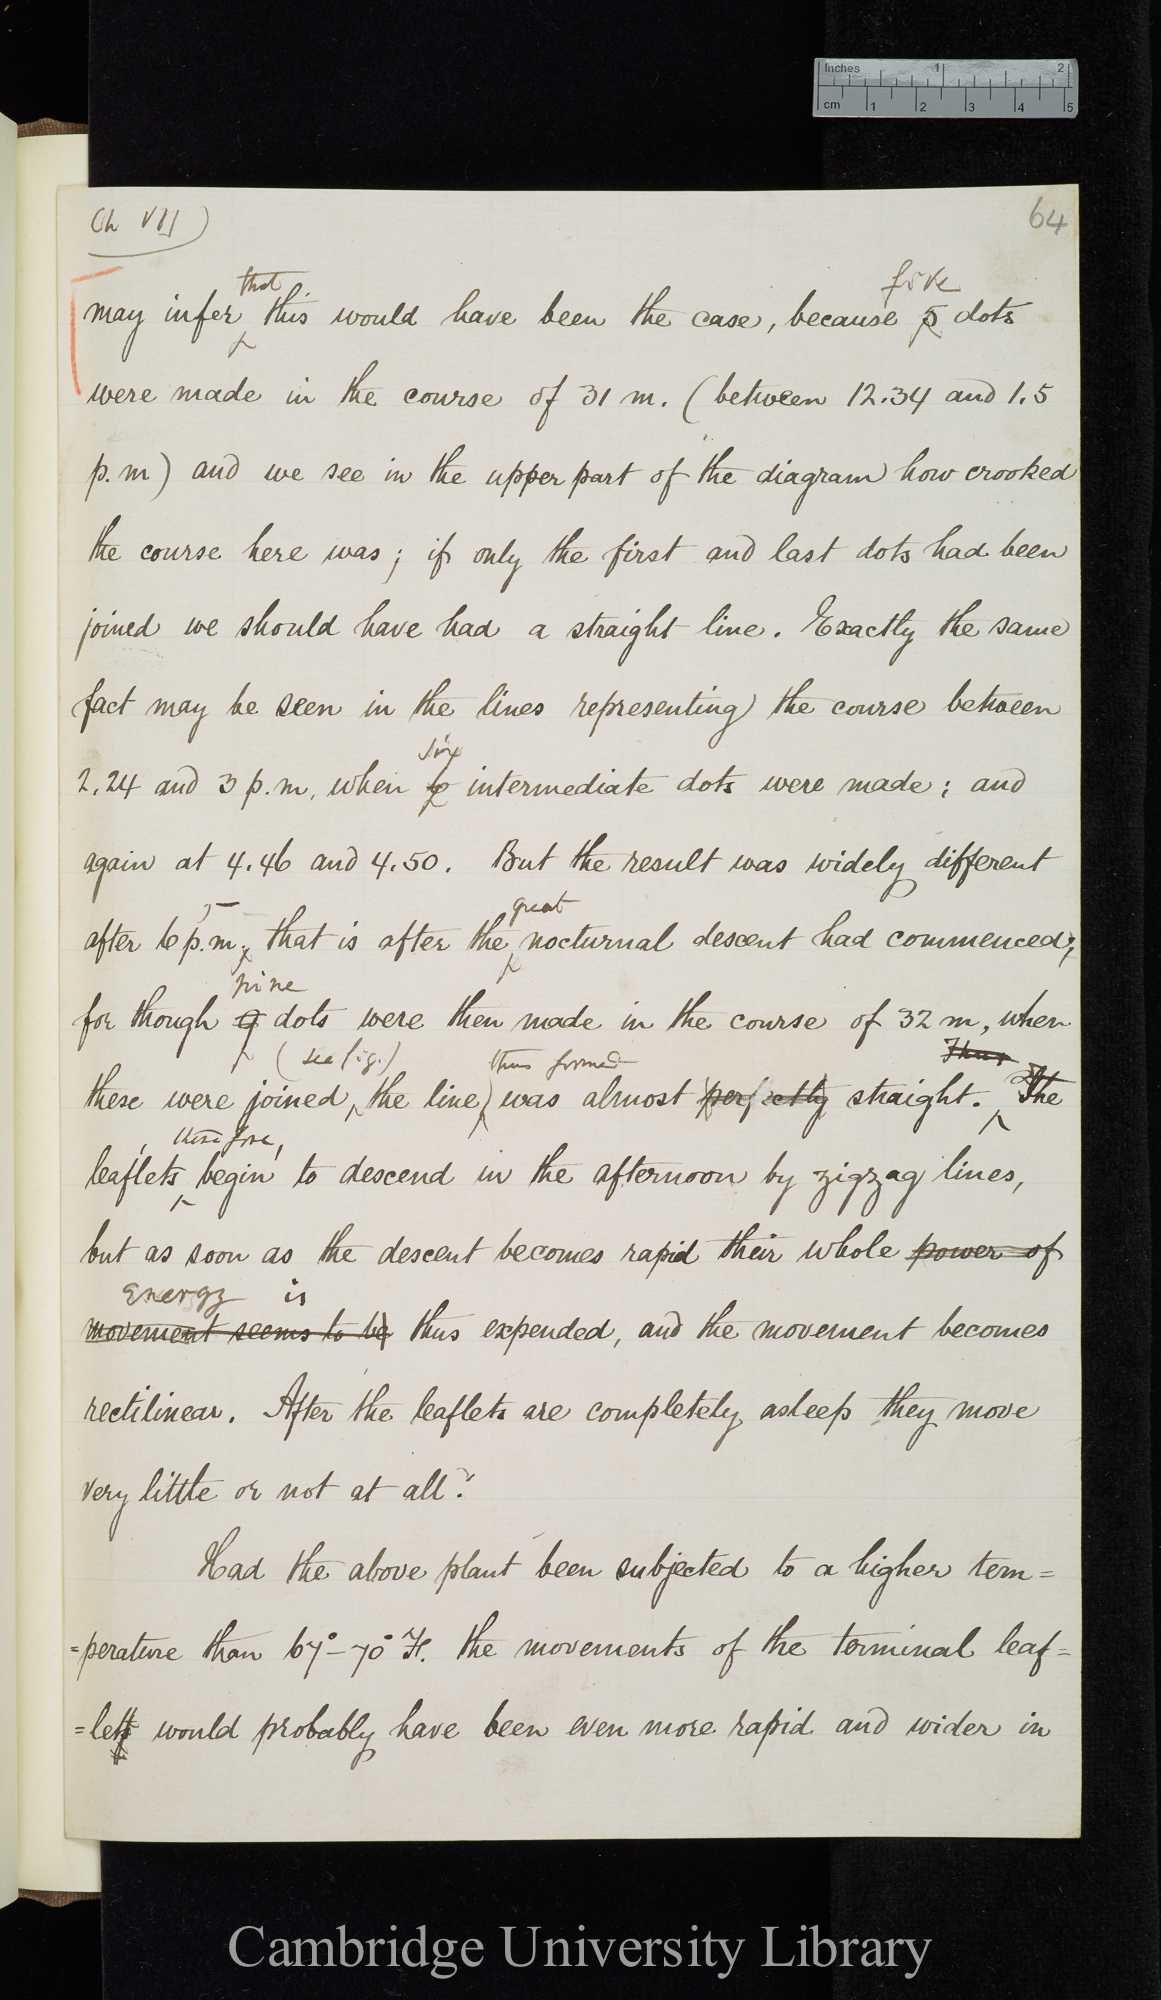 Inches 1 2
cm 1 2 3 4 5
Ch VII)
64
that
five
may infer this would have been the case, because 5 dots
were made in the course of 31 m. (between 12.34 and 1.5
p.m) and we see in the upper part of the diagram how crooked
the course here was; if only the first and last dots had been
joined we should have had a straight line. Exactly the same
fact may be seen in the lines representing the course between
six
2.24 and 3 p.m, when 6 intermediate dots were made; and
again at 4.46 and 4.50. But the result was widely different
great
after 6 p.m; that is after the nocturnal descent had commenced;
nine
for though 9 dots were then made in the course of 32 m, when
(see fig.) thus formed Thus
these were joined, the line was almost perfectly straight. The
therefore,
leaflets, begin to descend in the afternoon by zigzag lines,
but as soon as the descent becomes rapid their whole power of
energy is
movement seems to be thus expended, and the movement becomes
rectilinear. After the leaflets are completely asleep they move
very little or not at all.
Had the above plant been subjected to a higher tem=
=perature than 67°-70° F. the movements of the terminal leaf=
=let would probably have been even more rapid and wider in
Cambridge University Library